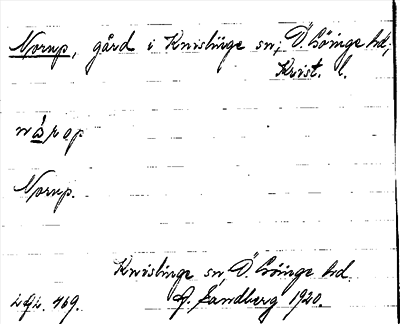 Norup, gård i Knislinge sn, Ö. Göinge hd,
Krist. l.
Norup.
Knislinge sn, Ö. Göinge hd.
A. Sandberg 1920.